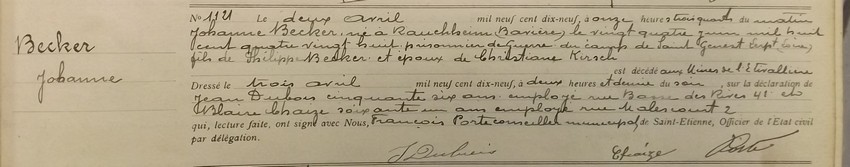 Becker
Johanne
N° 1121 Le deux Avril mil neuf cent dix-neuf, à onze heures trois quarts du matin
Johanne Becker, né à Rauchheim Bavière, le vingt quatre juin mil huit
cent quatre vingt huit, prisonnier de guerre du camp de Saint Genest Lerpt Loire,
fils de Philippe Becker et époux de Christiane Kirsch
est décédé aux Mines de l'Etivallière
Dressé le trois avril mil neuf cent dix-neuf, à deux heures et demie du soir, sur la déclaration de
Jean Dubois cinquante six ans employé rue Basse des Rives 41 et
Blaise Chaize soixante un ans employé rue Malescourt 2
qui, lecture faite, ont signé avec Nous, François Porte conseiller municipal, de Saint-Etienne, Officier de l'Etat civil
par délégation.
J Dubois Chaize Porte